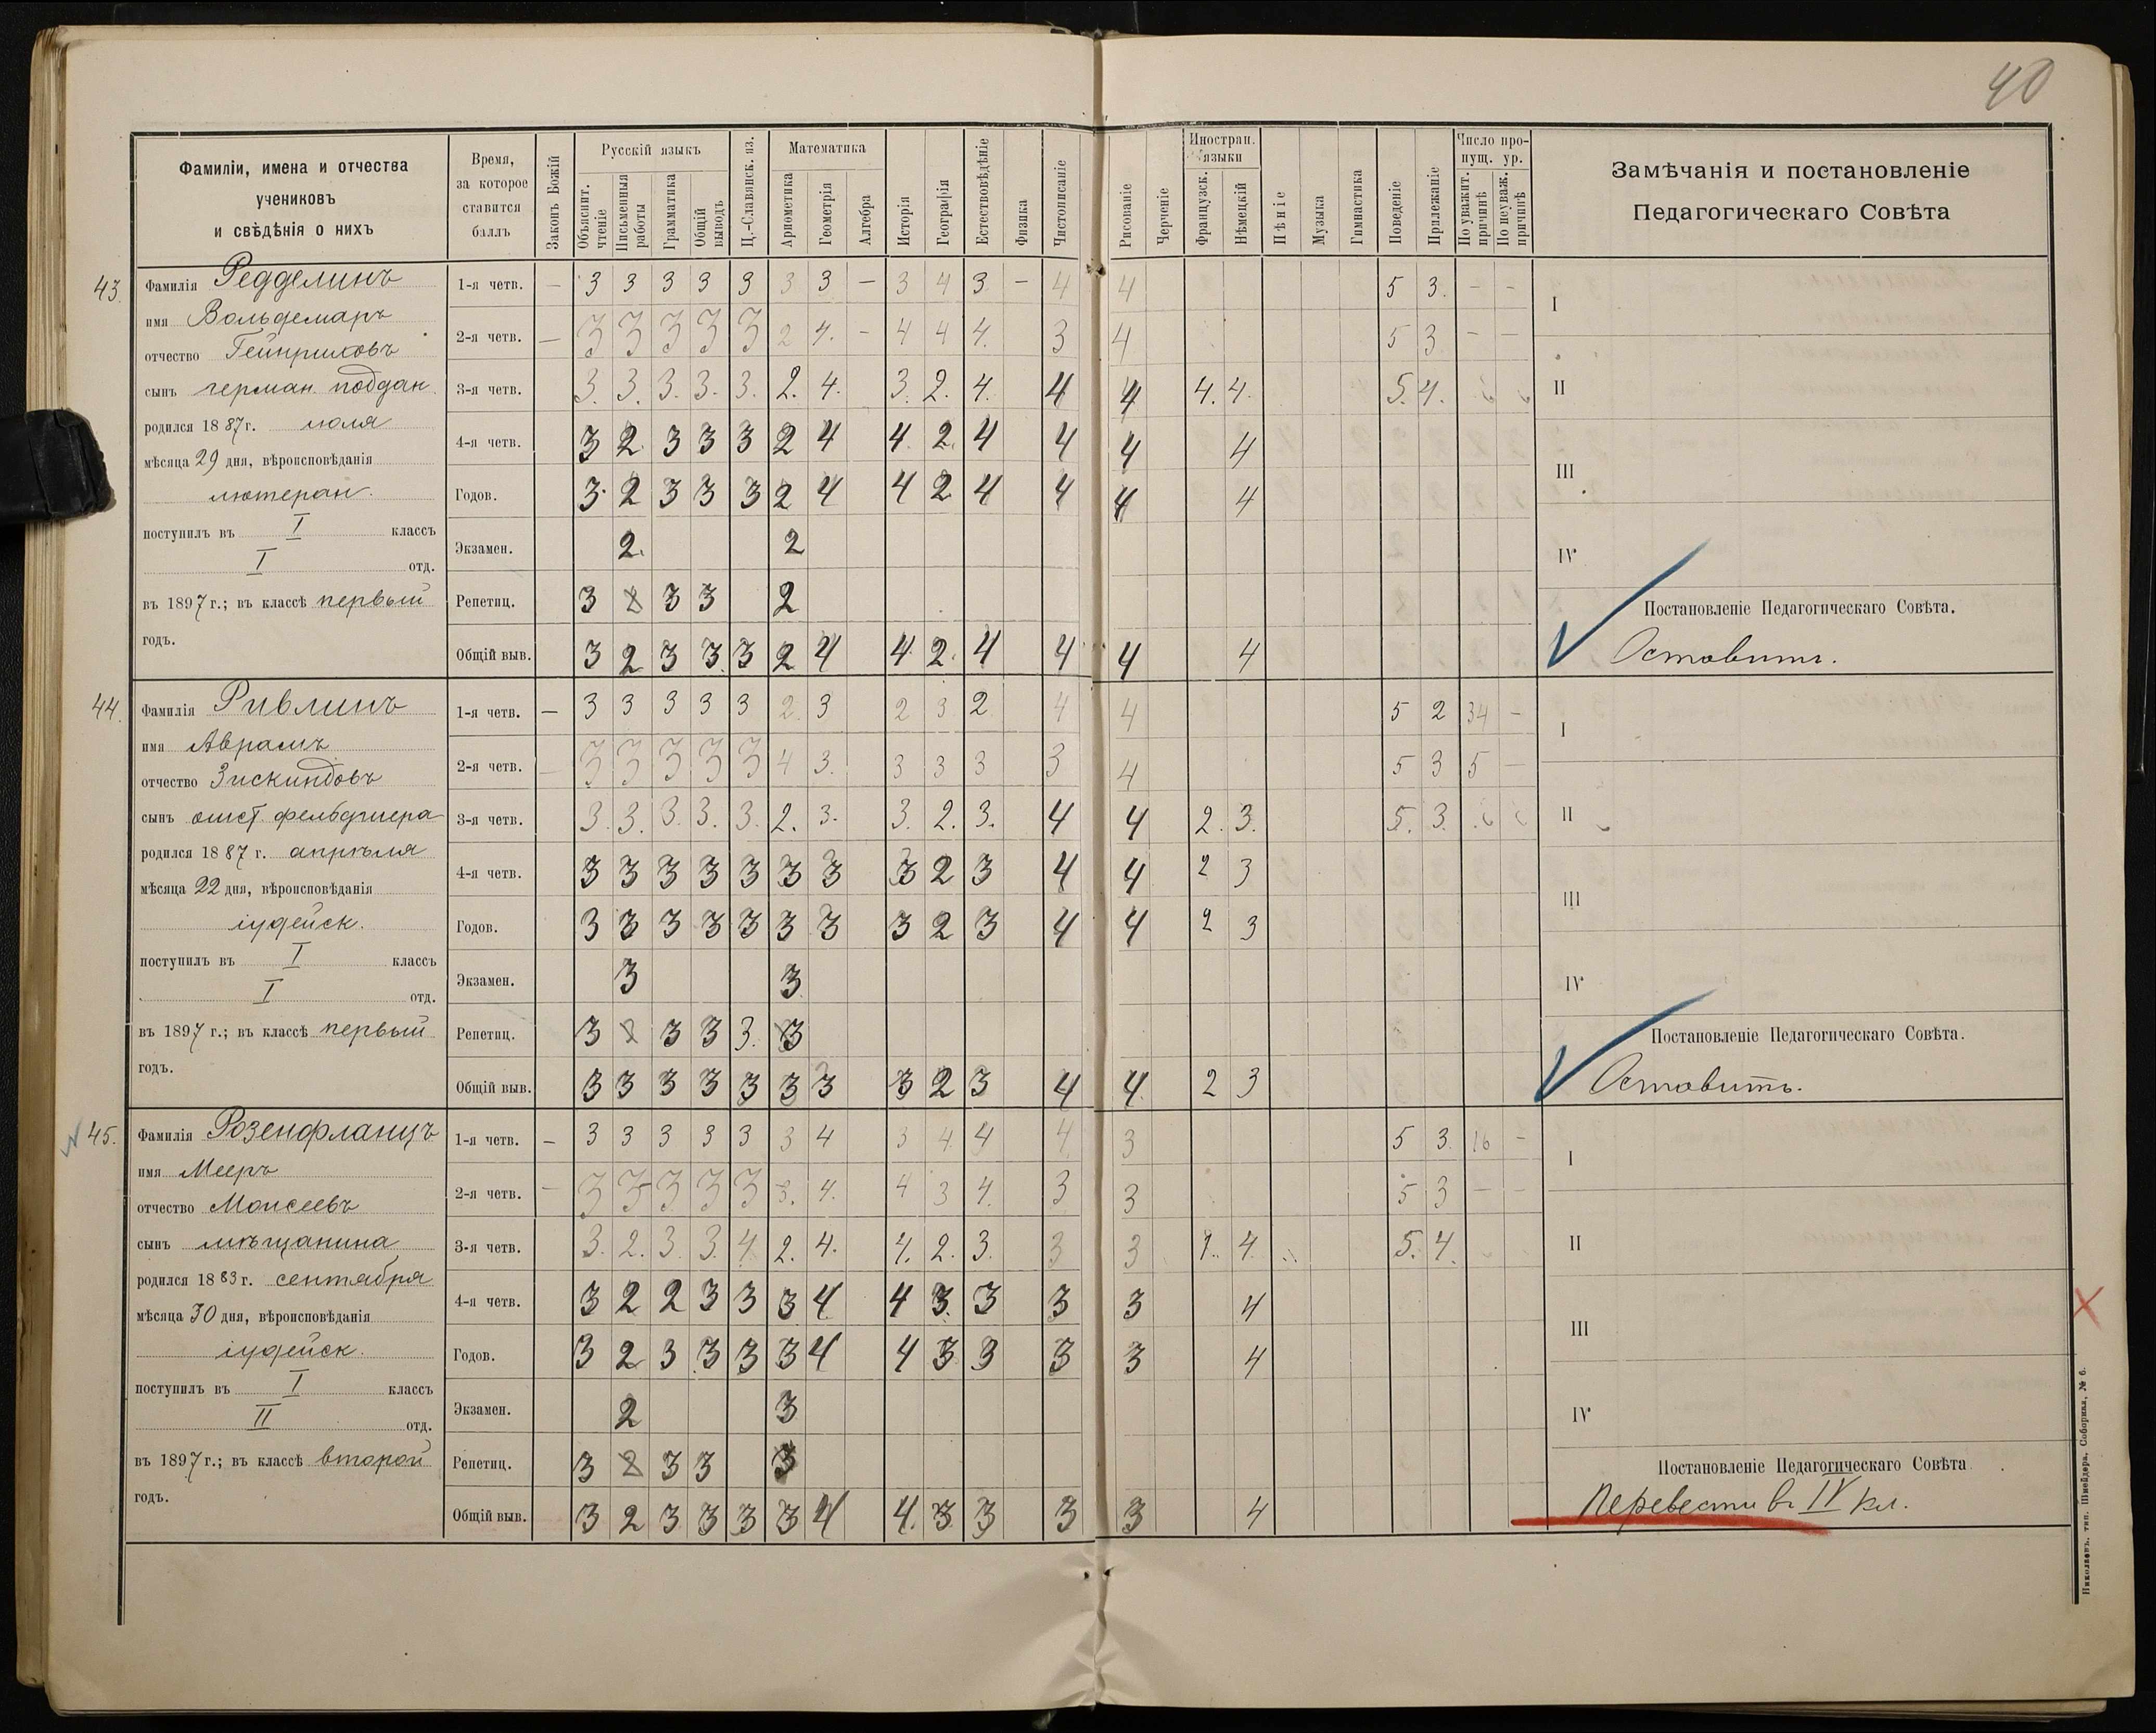 40
Фамиліи, имена и отчества
учениковъ
и свѣдѣнія о нихъ
Время,
за которое
ставится
баллъ
Законъ Божій
Русскій языкъ
Объяснит. чтеніе
Письменныя работы
Грамматика
Общій выводъ
Ц.-Славянск. яз.
Математика
Арифметика
Геометрія
Алгебра
Исторія
Географія
Естествовѣдѣніе
Физика
Чистописаніе
Рисованіе
Черченіе
Иностран. языки
Французск.
Нѣмецкій
Пѣніе
Музыка
Гимнастика
Поведеніе
Прилежаніе
Число пропущ. ур.
По уважит. причинѣ
По неуваж. причинѣ
Замѣчанія и постановленіе
Педагогическаго Совѣта
43.
Фамилія Редделинъ
имя Вольдемаръ
отчество Гейнриховъ
сынъ герман. поддан.
родился 1887 г. июля
мѣсяца 29 дня, вѣроисповѣданія
лютеран.
поступилъ въ I классъ
I отд.
въ 1897 г.; въ классѣ первый
годъ.
1-я четв. — 3 3 3 3 3 3 3 — 3 4 3 — 4 4 5 3. — —
2-я четв. — 3 3 3 3 3 2 4. — 4 4 4. 3 4 5 3 — —
3-я четв. 3. 3. 3. 3. 3. 2. 4. 3. 2. 4. 4 4 4. 4. 5. 4.
4-я четв. 3 2. 3 3 3 2 4 4. 2. 4 4 4 4
Годов. 3. 2 3 3 3 2 4 4 2 4 4 4 4
Экзамен. 2. 2
Репетиц. 3 2 3 3 2
Общій выв. 3 2 3 3. 3 2 4 4. 2. 4 4 4 4
I
II
III
IV
Постановленіе Педагогическаго Совѣта.
Оставить.
44.
Фамилія Ривлинъ
имя Аврамъ
отчество Зискиндовъ
сынъ отст. фельдшера
родился 1887 г. апрѣля
мѣсяца 22 дня, вѣроисповѣданія
іудейск.
поступилъ въ I классъ
I отд.
въ 1897 г.; въ классѣ первый
годъ.
1-я четв. — 3 3 3 3 3 2. 3 2 3 2 4 4 5 2 34 —
2-я четв. — 3 3 3 3 3 4 3. 3 3 3 3 4 5 3 5 —
3-я четв. 3. 3. 3. 3. 3. 2. 3. 3. 2. 3. 4 4 2. 3. 5. 3.
4-я четв. 3 3 3 3 3 3 3 3 2 3 4 4 2 3
Годов. 3 3 3 3 3 3 3 3 2 3 4 4 2 3
Экзамен. 3 3
Репетиц. 3 2 3 3 3. 3
Общій выв. 3 3 3 3 3 3 3 3 2 3 4 4 2 3
I
II
III
IV
Постановленіе Педагогическаго Совѣта.
Оставить.
45.
Фамилія Розенфланцъ
имя Мееръ
отчество Моисеевъ
сынъ мѣщанина
родился 1883 г. сентября
мѣсяца 30 дня, вѣроисповѣданія
іудейск.
поступилъ въ I классъ
II отд.
въ 1897 г.; въ классѣ второй
годъ.
1-я четв. — 3 3 3 3 3 3 4 3 4 4 4 3 5 3. 16 —
2-я четв. — 3 3 3 3 3 3. 4. 4 3 4. 3 3 5 3 — —
3-я четв. 3. 2. 3. 3. 4. 2. 4. 4. 2. 3. 3 3 4. 5. 4.
4-я четв. 3 2 2 3 3 3 4 4 3. 3 3 3 4
Годов. 3 2 3 3 3 3 4 4 3 3 3 3 4
Экзамен. 2 3
Репетиц. 3 2 3 3 3
Общій выв. 3 2 3 3 3 3 4 4. 3 3 3 3 4
I
II
III
IV
Постановленіе Педагогическаго Совѣта
Перевести въ IV кл.
Николаевъ. тип. Шнейдера. Соборная, № 6.